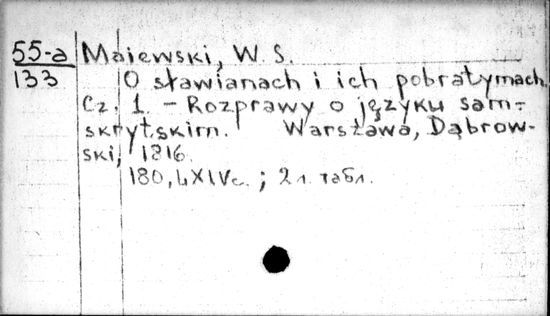 55-a Maiewski, W. S.
133 O sławianach i ich pobratymach.
Cz. 1. - Rozprawy o języku sam-
skrytskim. Warszawa, Dąbrow-
ski, 1816.
180, LXIV c. ; 2 л. табл.